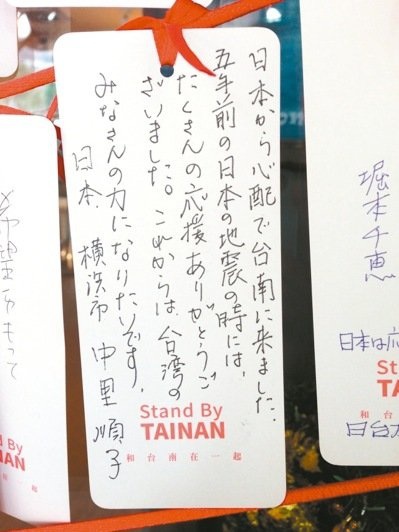 日本から心配で台南に来ました。
五年前の日本の地震の時には、
たくさんの応援ありがとうご
ざいました。これからは、台湾の
みなさんの力になりたいです。
日本 横浜市 中里順子
Stand By
TAINAN
和台南在一起
堀本千恵
日本は応
St
TA
和台
日台
希望をもって
nd By
NAN
起